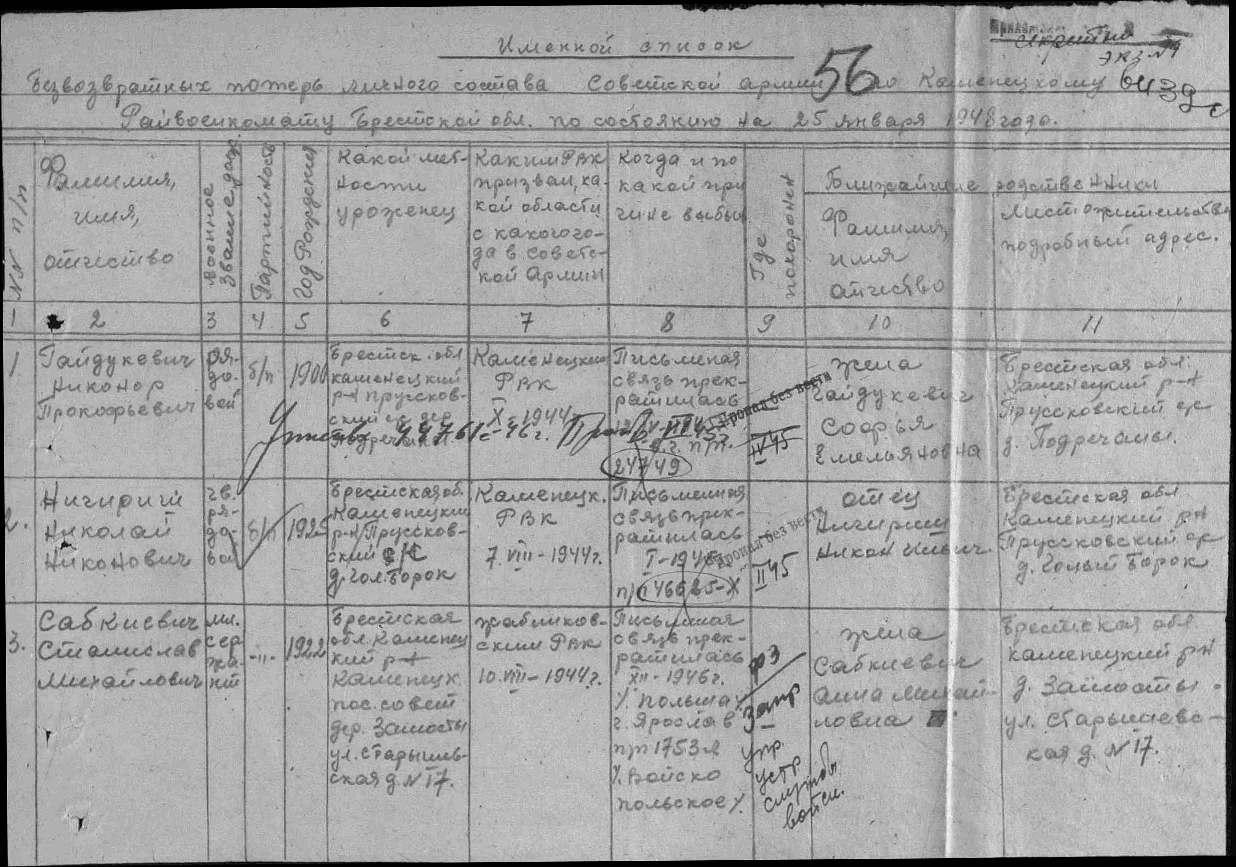 секретно
экз №1
Именной список
56
безвозвратных потерь личного состава Советской армии по Каменецкому
Райвоенкомату Брестской обл. по состоянию на 25 января 1948 года.
№№ п/п
Фамилия,
имя,
отчество
Военное
звание, долж
Партийность
Год Рождения
Какой мест-
ности
уроженец
Каким РВК
призван, ка-
кой области
с какого го-
да в советс-
кой Армии
Когда и по
какой при
чине выбыл
Где
похоронен
Ближайшие родственники
Фамилия,
имя
отчество
Местожительства
подробный адрес.
1 2 3 4 5 6 7 8 9 10 11
1
Гайдукевич
Никонор
Прокофьевич
ря-
до-
вой
б/п
1900
Брестск. обл
каменецкий
р-н Прусков-
ский
Каменецким
РВК
X - 1944
Письменая
связь прек-
ратилась
п/п.
24749
Пропал без вести
IV 45
жена
Гайдукевич
Софья
Емельяновна
Брестская обл.
Каменецкий р-н
Прусковский с/с
д. Подречаны.
2.
Ничипис
Николай
Никонович
гв.
ря-
до-
вой
б/п
1925
Брестская об.
Каменецкий
р-н Прусков-
ский с/с
д. Гол. Борок
Каменецк.
РВК
7. VIII - 1944г.
Письменная
связь прек-
ратилась
I - 1945
п/п 46685-Х
Пропал без вести
II 45
отец
Никон
Брестская обл
Каменецкий р-н
Прусковский с/с
д. Голый Борок
3.
Сабкиевич
Станислав
Михайлович
мл.
сер
жа-
нт
-"-
1922
Брестская
обл. Каменец
кий р-н
Каменецк.
пос. совет
дер. Замосты
ул. Старышев-
ская д. №17.
жабинков-
ским РВК
10. VIII - 1944г.
Письменая
связь прек-
ратилась
XII - 1946г.
/. Польша /.
г. Ярослав
п/п 1753
/. Войско
польское /.
ф 3
Запр
упр.
устр
службы
войск.
жена
Сабкиевич
Анна Михай-
ловна
Брестская обл
каменецкий р-н
д. Замосты
ул. Старышевс-
кая д. №17.